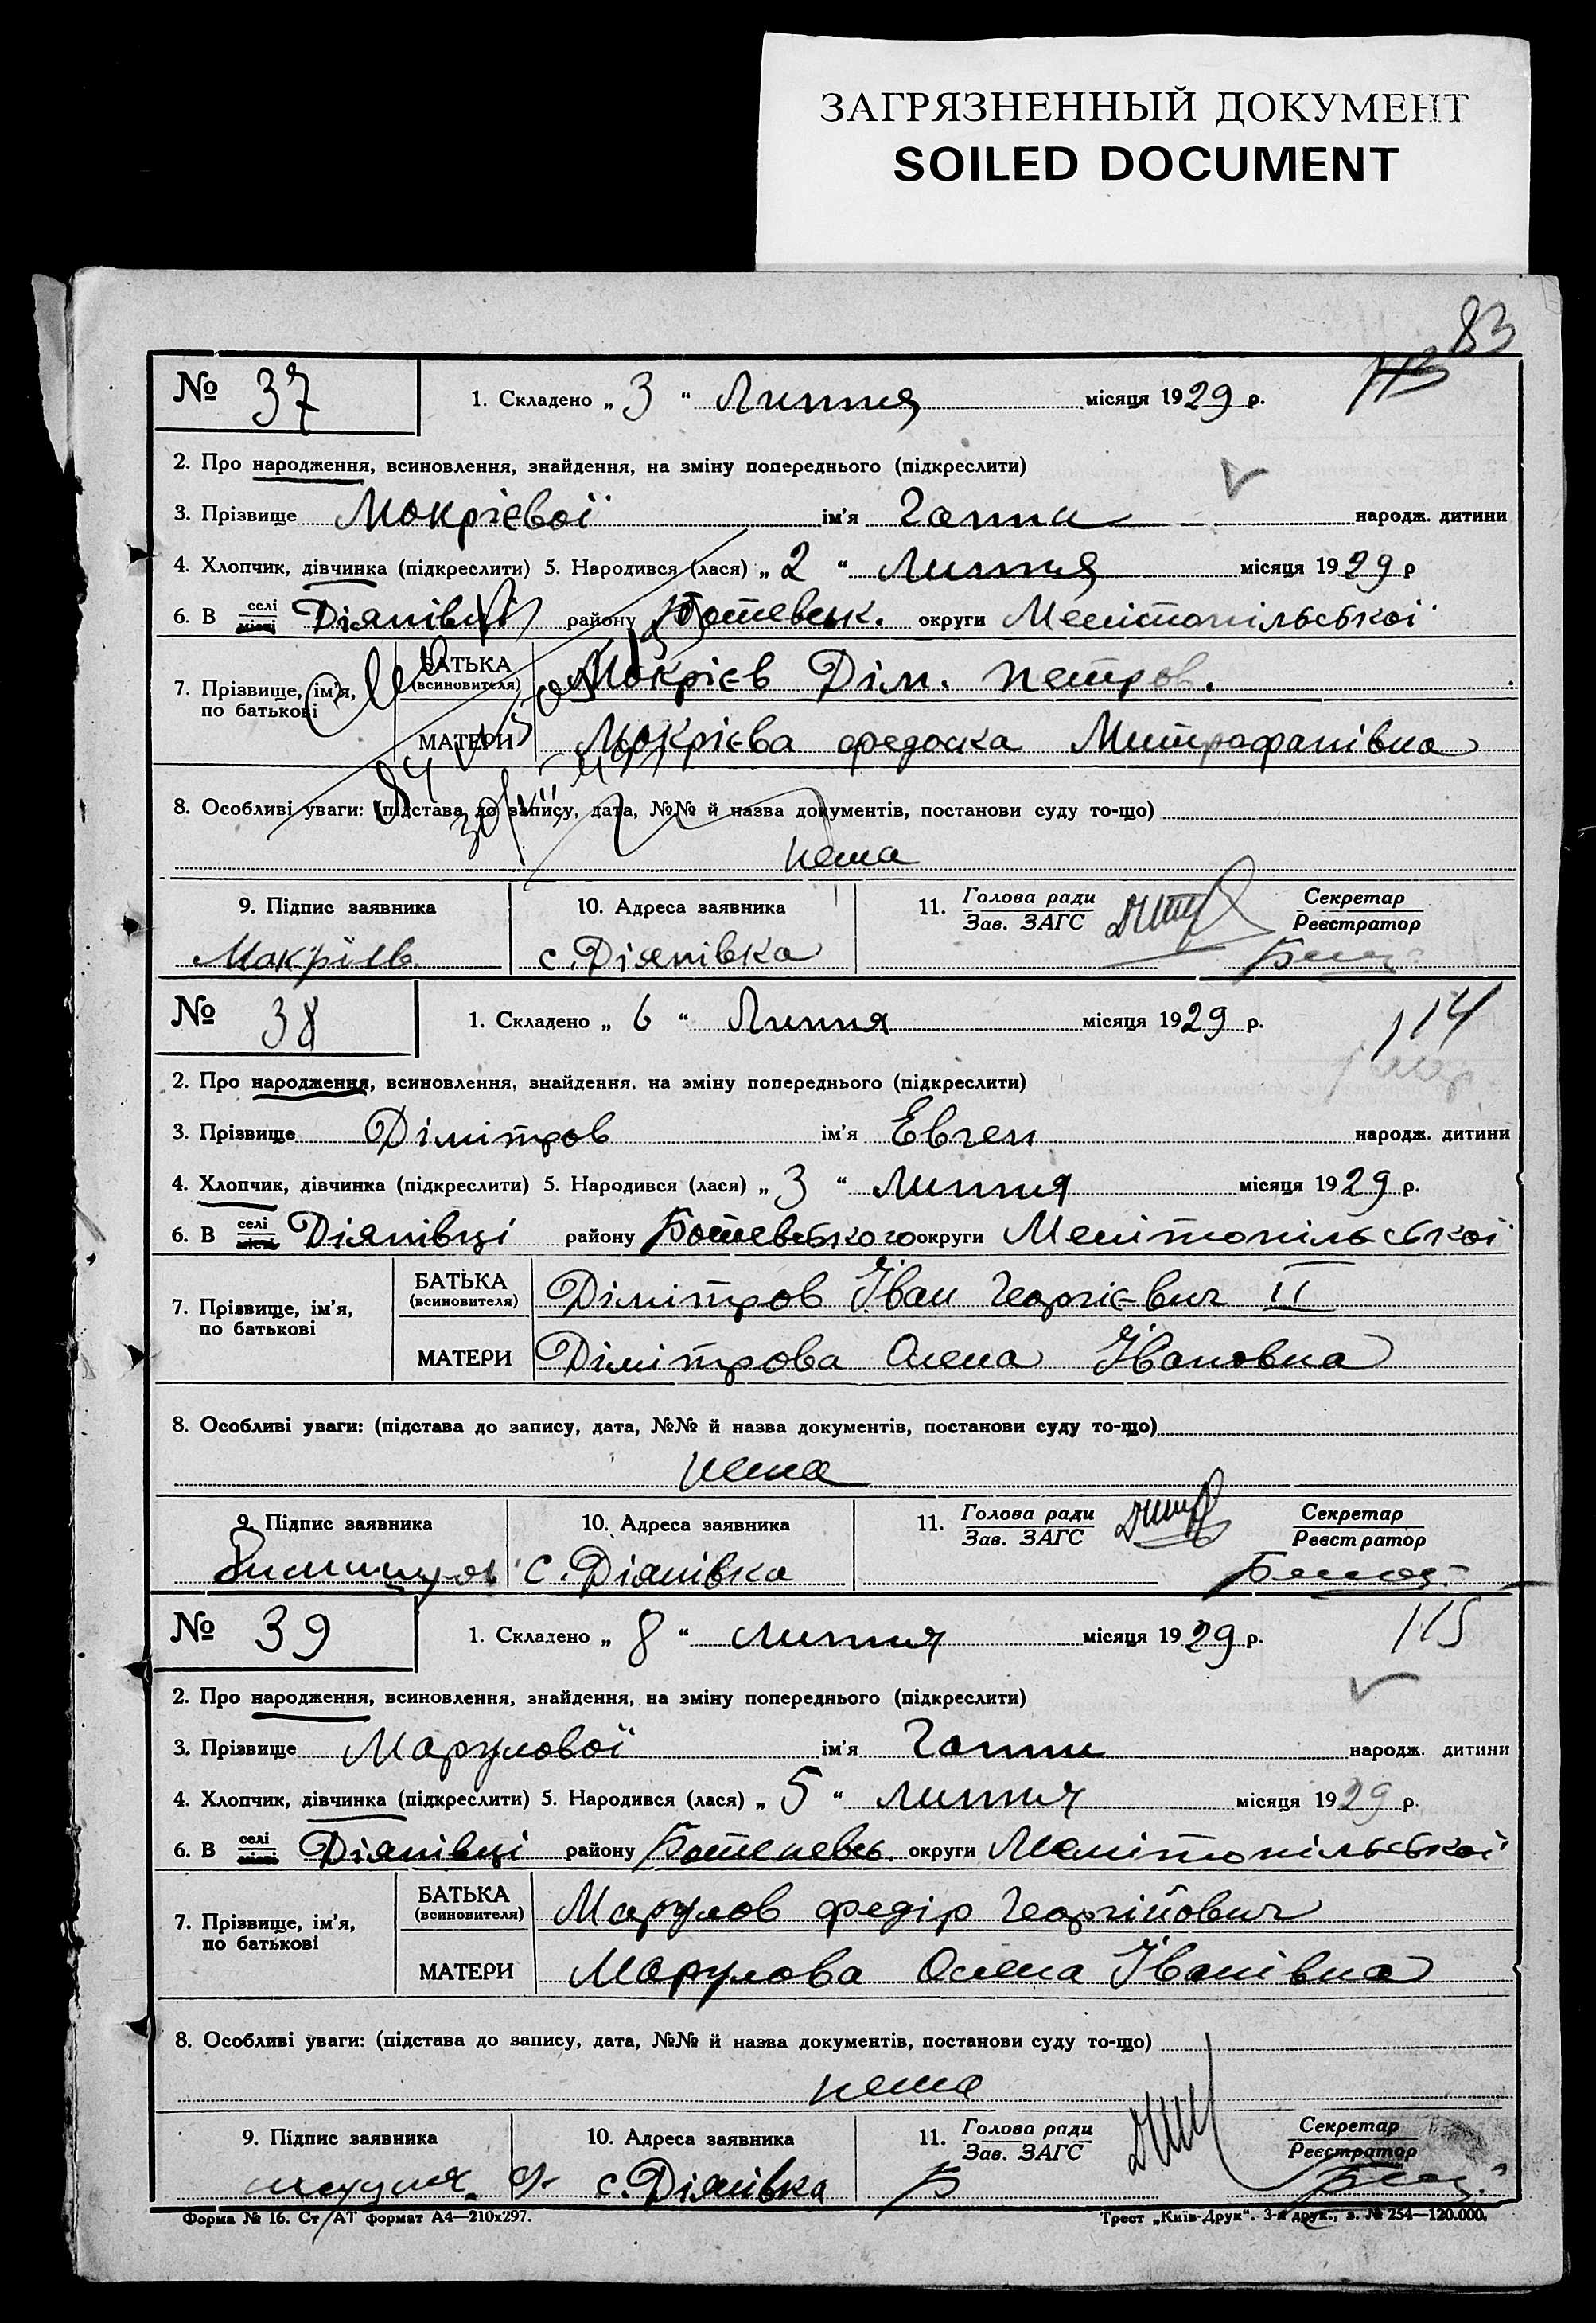 ЗАГРЯЗНЕННЫЙ ДОКУМЕНТ
SOILED DOCUMENT
83
113
№ 37 1. Складено „ 3 “ Липня місяця 1929 р.
2. Про народження, всиновлення, знайдення, на зміну попереднього (підкреслити)
3. Прізвище Мокрієвої ім'я Ганни народж. дитини
4. Хлопчик, дівчинка (підкреслити) 5. Народився (лася) „ 2 “ Липня місяця 1929 р
6. В селі місті Діянівці району Ботевськ. округи Мелітопільської
7. Прізвище, ім'я, по батькові
БАТЬКА (всиновителя) Мокрієв Дім. Петров.
МАТЕРИ Мокрієва Федоска Митрафанівна
8. Особливі уваги: (підстава до запису, дата, №№ й назва документів, постанови суду то-що)
нема
9. Підпис заявника 10. Адреса заявника 11. Голова ради Зав. ЗАГС Секретар Реєстратор
Мокріев с. Діянівка
№ 38 1. Складено „ 6 “ Липня місяця 1929 р. 114
2. Про народження, всиновлення, знайдення, на зміну попереднього (підкреслити)
3. Прізвище Дімітров ім'я Евген народж. дитини
4. Хлопчик, дівчинка (підкреслити) 5. Народився (лася) „ 3 “ Липня місяця 1929 р.
6. В селі місті Діянівці району Ботевського округи Мелітопільської
7. Прізвище, ім'я, по батькові
БАТЬКА (всиновителя) Дімітров Іван Георгієвич II
МАТЕРИ Дімітрова Олена Івановна
8. Особливі уваги: (підстава до запису, дата, №№ й назва документів, постанови суду то-що)
нема
9. Підпис заявника 10. Адреса заявника 11. Голова ради Зав. ЗАГС Секретар Реєстратор
с. Діянівка
№ 39 1. Складено „ 8 “ липня місяця 1929 р. 115
2. Про народження, всиновлення, знайдення, на зміну попереднього (підкреслити)
3. Прізвище Марулової ім'я Ганни народж. дитини
4. Хлопчик, дівчинка (підкреслити) 5. Народився (лася) „ 5 “ липня місяця 1929 р.
6. В селі місті Діянівці району округи Мелітопільської
7. Прізвище, ім'я, по батькові
БАТЬКА (всиновителя) Марулов Федір Георгійович
МАТЕРИ Марулова Олена Іванівна
8. Особливі уваги: (підстава до запису, дата, №№ й назва документів, постанови суду то-що)
нема
9. Підпис заявника 10. Адреса заявника 11. Голова ради Зав. ЗАГС Секретар Реєстратор
с. Діянівка
Форма № 16. Ст АТ формат А4—210х297. Трест „Київ-Друк“. 3-я друк., з. № 254—120.000.